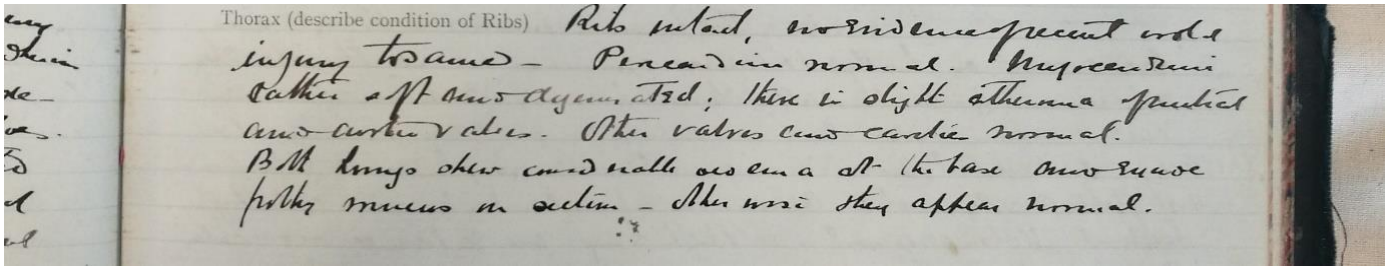 Thorax (describe condition of Ribs) Ribs intact, no evidence of recent or old
injury to same – Pericardium normal. Myocardium
rather soft and degenerated; there is slight atheroma of mitral
and aortic valves. Other valves and cardiæ normal.
Both lungs shew considerable oedema at the base and exude
frothy mucus on section – otherwise they appear normal.